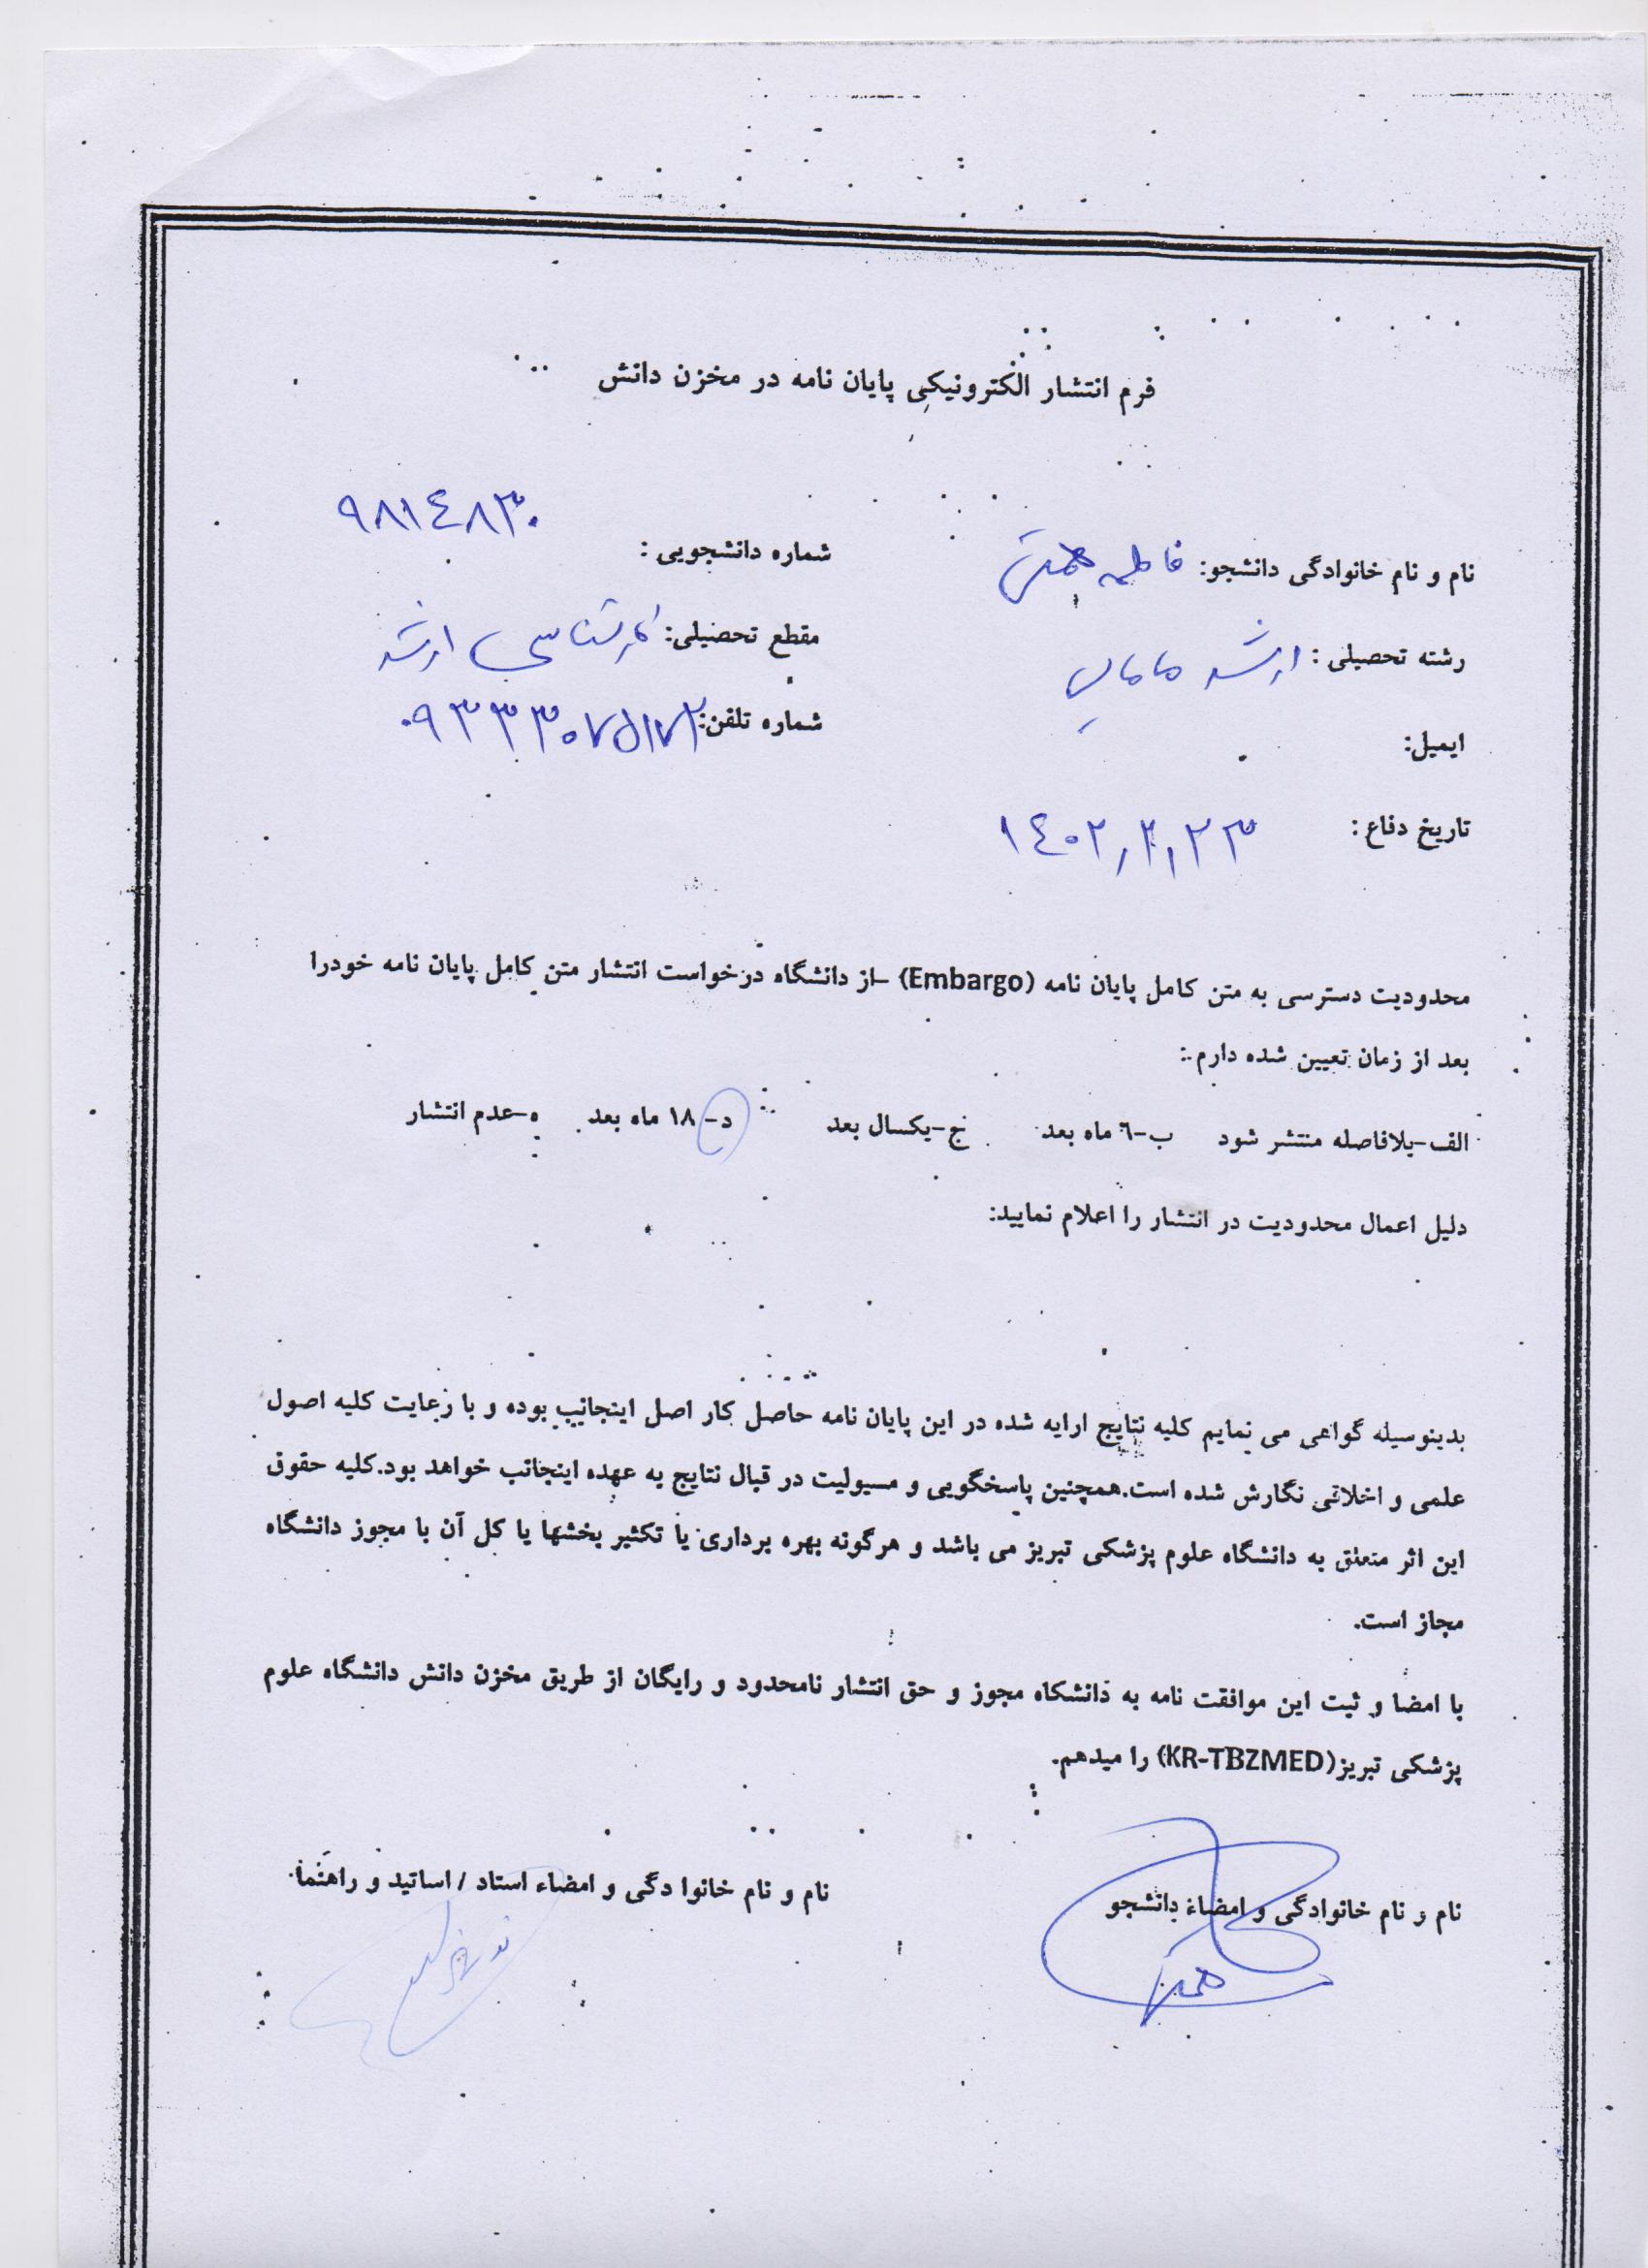 فرم انتشار الکترونیکی پایان نامه در مخزن دانش
نام و نام خانوادگی دانشجو: فاطمه همتی شماره دانشجویی : ۹۸۱۴۸۳۰
رشته تحصیلی : ارشد مامایی مقطع تحصیلی: کارشناسی ارشد
ایمیل: شماره تلفن:
تاریخ دفاع : ۱۴۰۲,۲,۲۳
محدودیت دسترسی به متن کامل پایان نامه (Embargo) –از دانشگاه درخواست انتشار متن کامل پایان نامه خودرا
بعد از زمان تعیین شده دارم.:
الف-بلافاصله منتشر شود ب-٦ ماه بعد ج-یکسال بعد د- ۱۸ ماه بعد ه-عدم انتشار
دلیل اعمال محدودیت در انتشار را اعلام نمایید:
بدینوسیله گواهی می نمایم کلیه نتایج ارایه شده در این پایان نامه حاصل کار اصل اینجانب بوده و با رعایت کلیه اصول
علمی و اخلاقی نگارش شده است.همچنین پاسخگویی و مسیولیت در قبال نتایج به عهده اینجانب خواهد بود.کلیه حقوق
این اثر متعلق به دانشگاه علوم پزشکی تبریز می باشد و هرگونه بهره برداری یا تکثیر بخشها یا کل آن با مجوز دانشگاه
مجاز است.
با امضا و ثبت این موافقت نامه به دانشگاه مجوز و حق انتشار نامحدود و رایگان از طریق مخزن دانش دانشگاه علوم
پزشکی تبریز(KR-TBZMED) را میدهم.
نام و نام خانوادگی و امضاء دانشجو نام و نام خانوا دگی و امضاء استاد / اساتید و راهنما
همتی